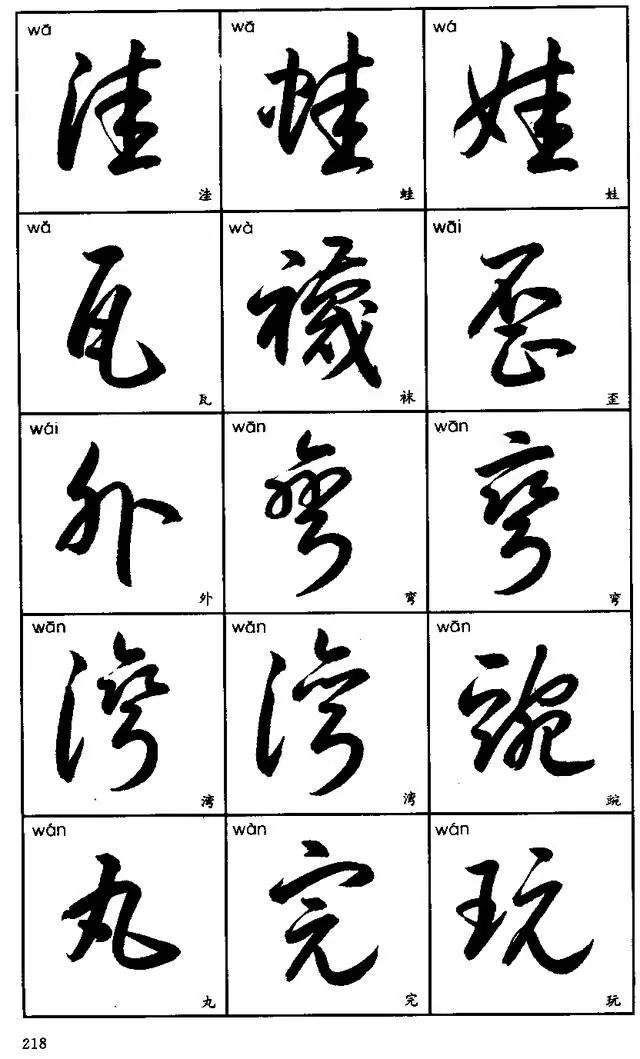 wā wā wá
洼 蛙 娃
洼 蛙 娃
wǎ wà wāi
瓦 襪 歪
瓦 袜 歪
wái wān wān
外 彎 弯
外 弯 弯
wān wān wān
灣 湾 豌
湾 湾 豌
wán wàn wán
丸 完 玩
丸 完 玩
218